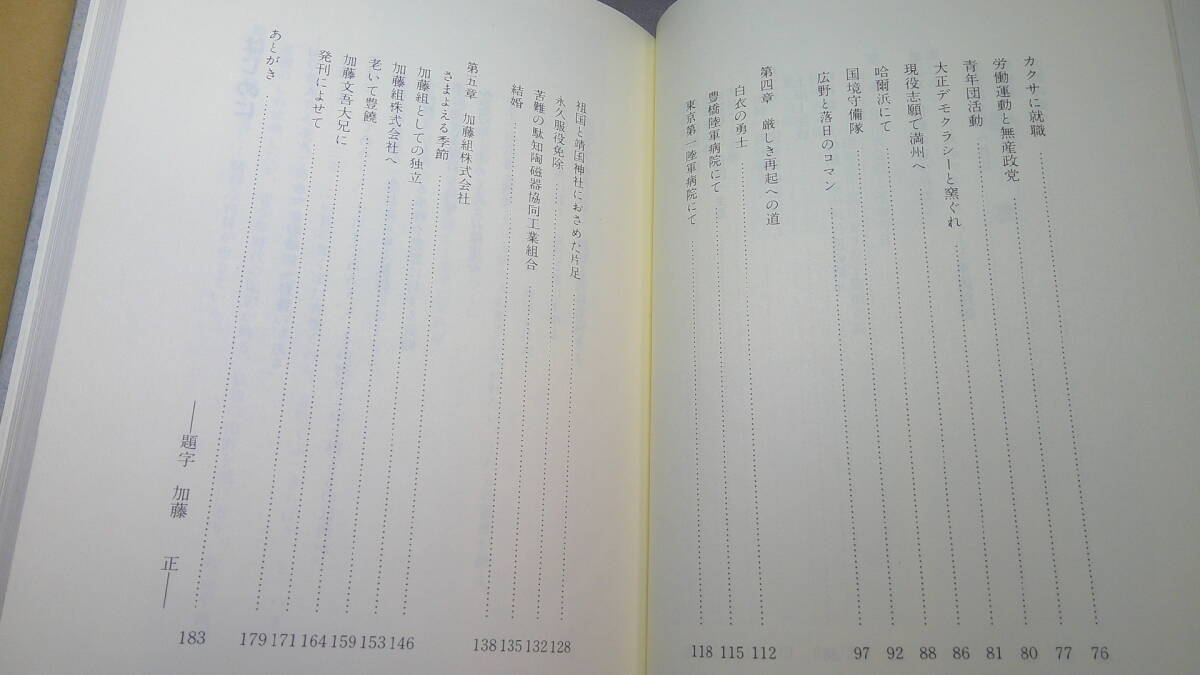 カクサに就職 76
労働運動と無産政党 77
青年団活動 80
大正デモクラシーと窯ぐれ 81
現役志願で満州へ 86
哈爾浜にて 88
国境守備隊 92
広野と落日のコマン 97
第四章 厳しき再起への道
白衣の勇士 112
豊橋陸軍病院にて 115
東京第一陸軍病院にて 118
祖国と靖国神社におさめた片足 128
永久服役免除 132
苦難の駄知陶磁器協同工業組合 135
結婚 138
第五章 加藤組株式会社
さまよえる季節 146
加藤組としての独立 153
加藤組株式会社へ 159
老いて豊饒 164
加藤文吾大兄に 171
発刊によせて 179
あとがき 183
──題字 加藤 正──